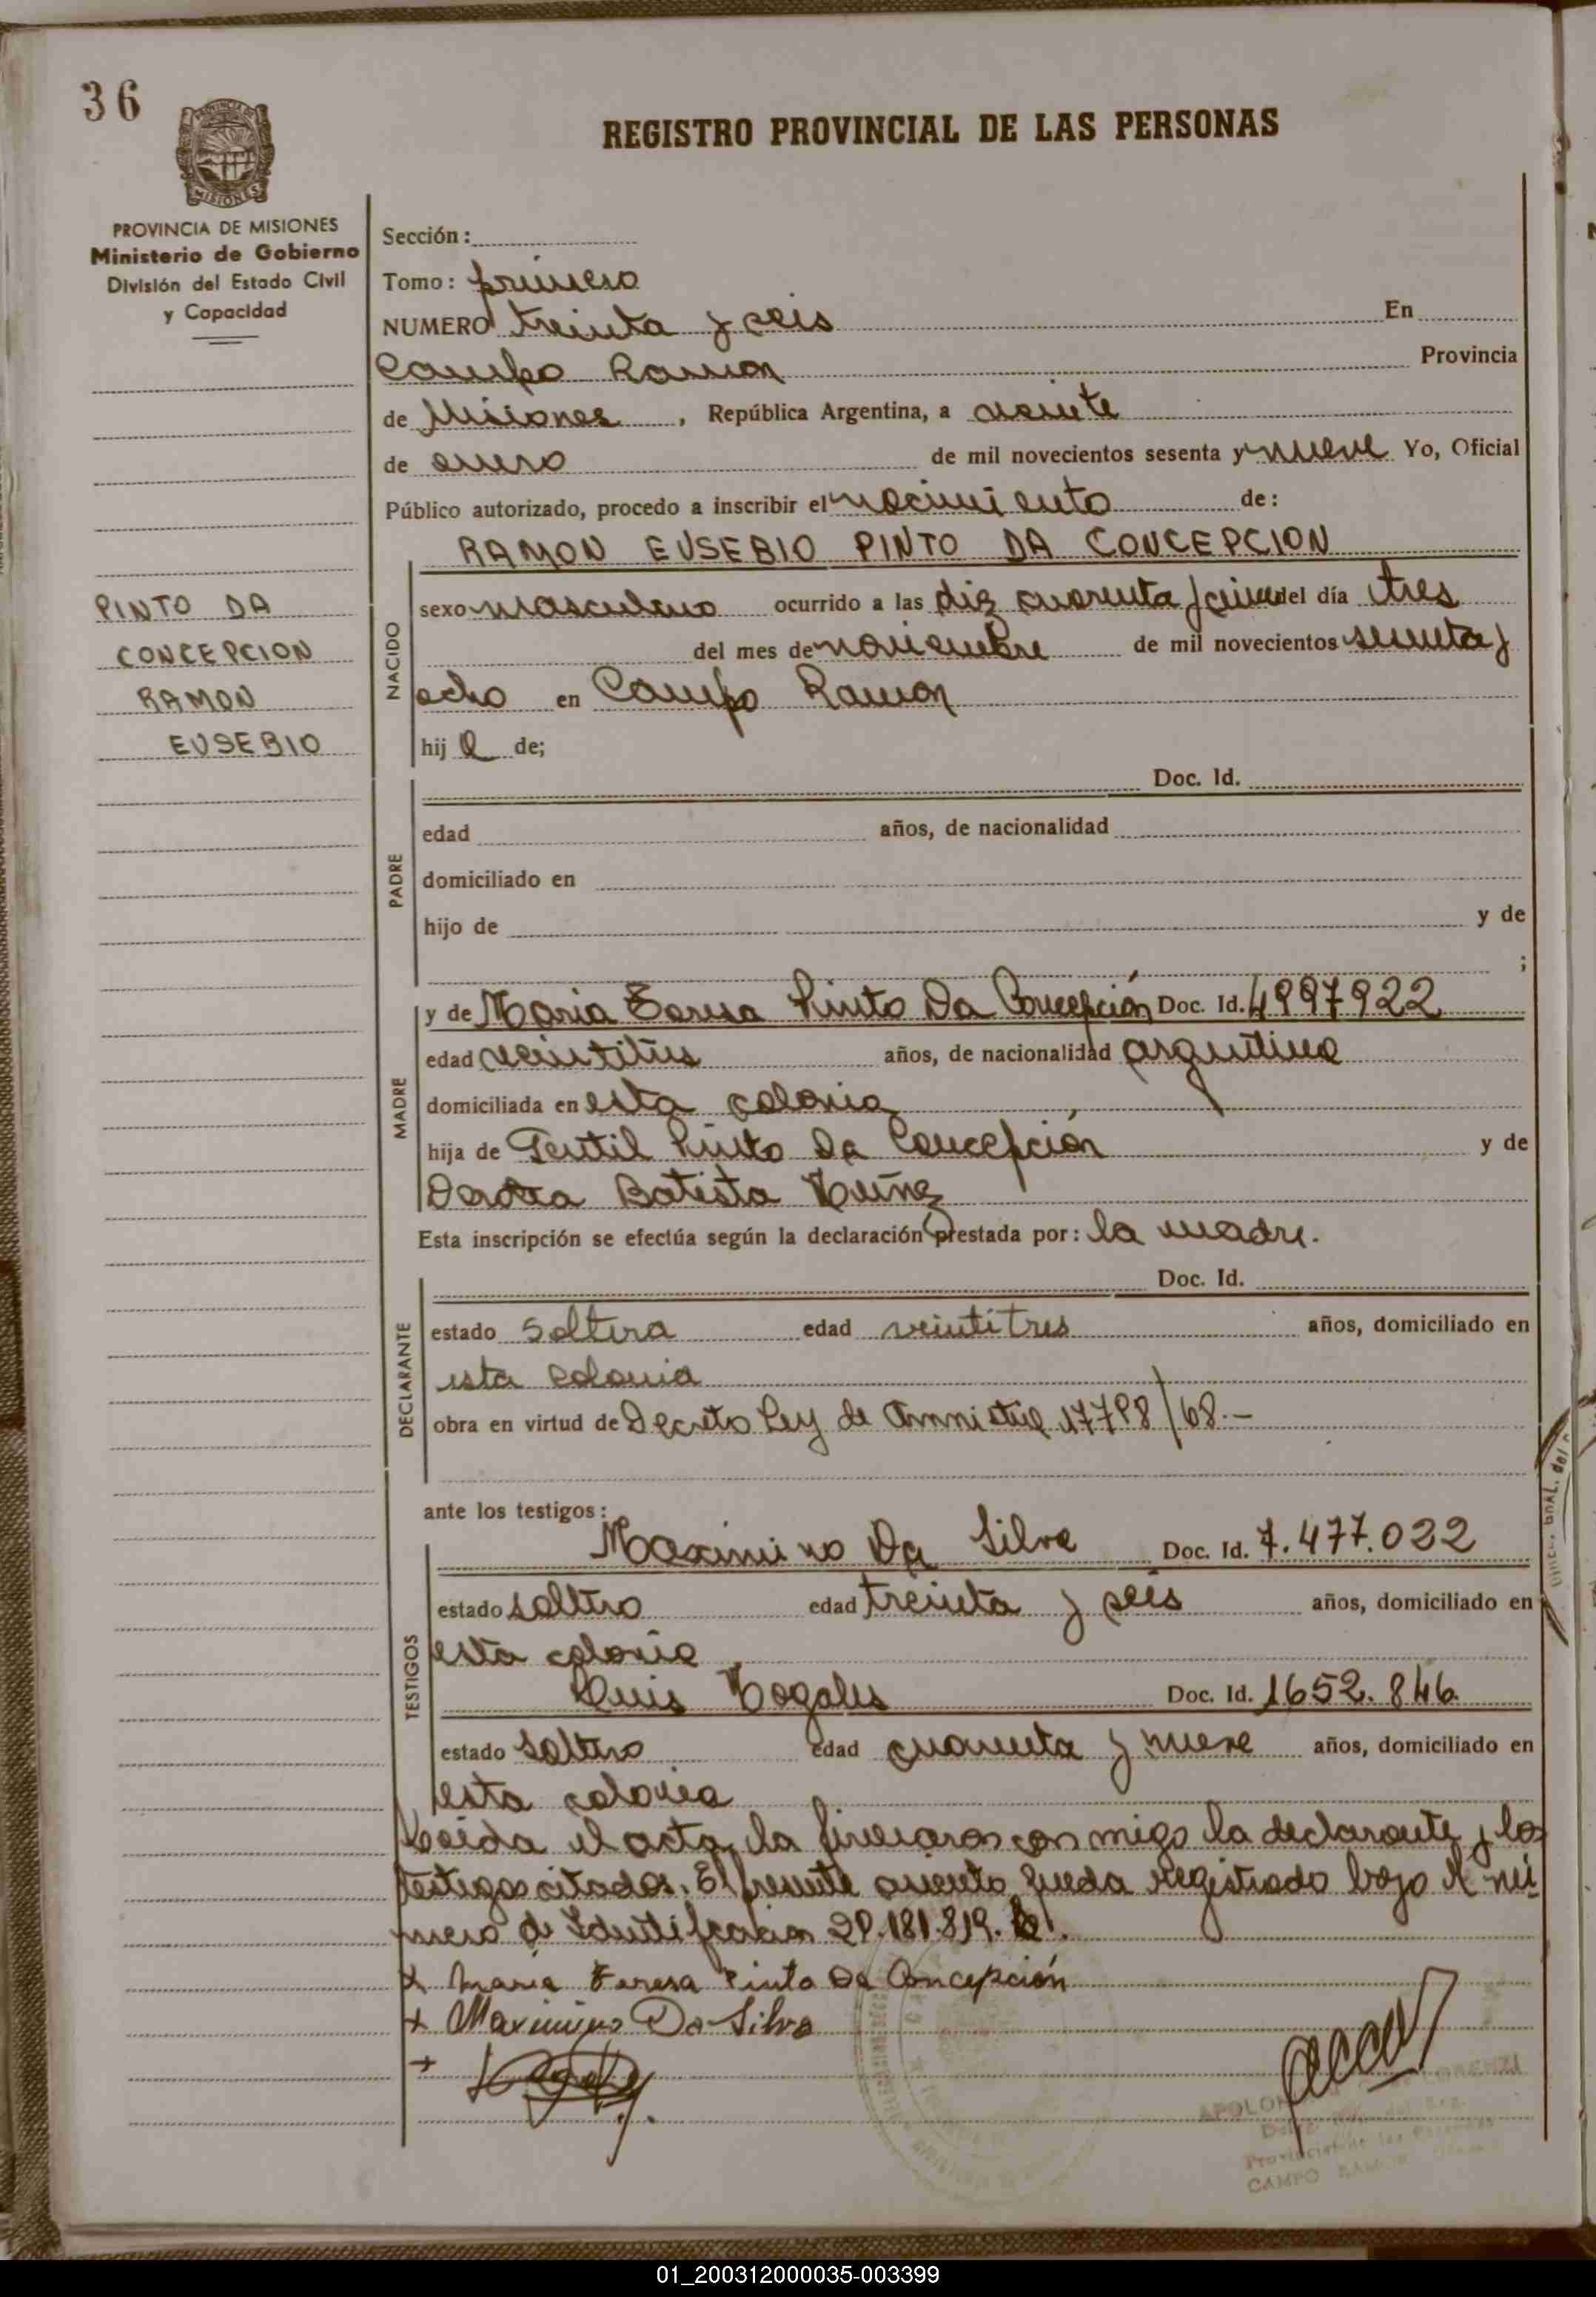 36
PROVINCIA DE
MISIONES
REGISTRO PROVINCIAL DE LAS PERSONAS
PROVINCIA DE MISIONES
Ministerio de Gobierno
División del Estado Civil
y Capacidad
PINTO DA
CONCEPCION
RAMON
EUSEBIO
Sección:
Tomo: primero
NUMERO treinta y seis En
Campo Ramon Provincia
de Misiones, República Argentina, a veinte
de enero de mil novecientos sesenta y nueve Yo, Oficial
Público autorizado, procedo a inscribir el nacimiento de:
RAMON EUSEBIO PINTO DA CONCEPCION
NACIDO
sexo masculino ocurrido a las diez cuarenta y cinco del día tres
del mes de noviembre de mil novecientos sesenta y
ocho en Campo Ramon
hij o de;
PADRE
Doc. Id.
edad años, de nacionalidad
domiciliado en
hijo de y de
;
MADRE
y de Maria Teresa Pinto Da Concepción Doc. Id. 4997922
edad veintitres años, de nacionalidad argentina
domiciliada en esta colonia
hija de Gentil Pinto Da Concepción y de
Batista
Esta inscripción se efectúa según la declaración prestada por: la madre.
DECLARANTE
Doc. Id.
estado Soltera edad veintitres años, domiciliado en
esta colonia
obra en virtud de Decreto Ley de Amnistia 17798/68.-
ante los testigos:
TESTIGOS
Maximino Da Silva Doc. Id. 7.477.022
estado soltero edad treinta y seis años, domiciliado en
esta colonia
Luis Nogales Doc. Id. 1652.846
estado soltero edad cuarenta y nueve años, domiciliado en
esta colonia
Leida el acta, la firmaron con migo la declarante y los
testigos citados. El presente asiento queda registrado bajo el nú
mero de Identificacion 20.181.819.
x Maria Teresa Pinto Da Concepción
+ Maximino Da Silva
+
CAMPO RAMON
01_200312000035-003399